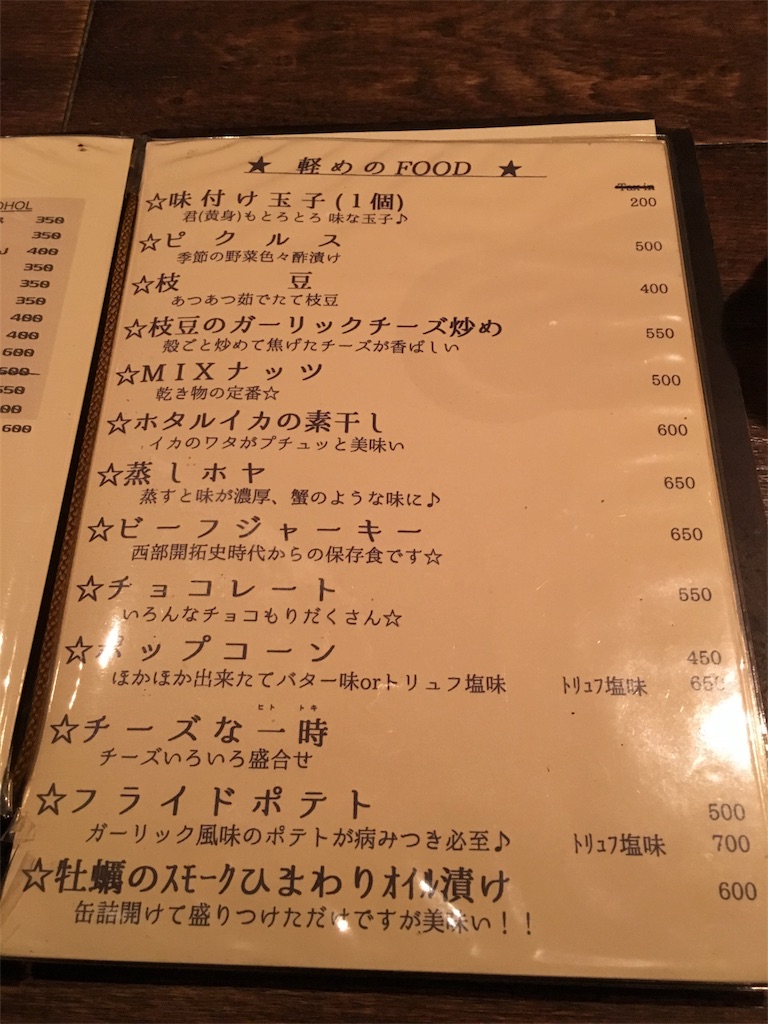 OHOL
350
350
400
350
350
350
400
400
600
500
550
600
★ 軽めのFOOD ★
Tax in
☆味付け玉子(1個) 200
君(黄身)もとろとろ 味な玉子♪
☆ピクルス 500
季節の野菜色々酢漬け
☆枝豆 400
あつあつ茹でたて枝豆
☆枝豆のガーリックチーズ炒め 550
殻ごと炒めて焦げたチーズが香ばしい
☆MIXナッツ 500
乾き物の定番☆
☆ホタルイカの素干し 600
イカのワタがプチュッと美味い
☆蒸しホヤ 650
蒸すと味が濃厚、蟹のような味に♪
☆ビーフジャーキー 650
西部開拓史時代からの保存食です☆
☆チョコレート 550
いろんなチョコもりだくさん☆
☆ポップコーン 450
ほかほか出来たてバター味orトリュフ塩味 ﾄﾘｭﾌ塩味 650
ヒト トキ
☆チーズな一時
チーズいろいろ盛合せ
☆フライドポテト 500
ガーリック風味のポテトが病みつき必至♪ ﾄﾘｭﾌ塩味 700
☆牡蠣のｽﾓｰｸひまわりｵｲﾙ漬け 600
缶詰開けて盛りつけただけですが美味い！！